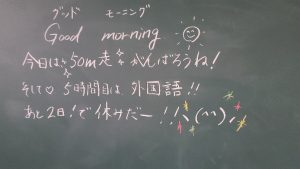 グッド モーニング
Good morning
今日は、50m走がんばろうね!
そして♡5時間目は、外国語!!
あと2日!で休みだー!!\(^^)/